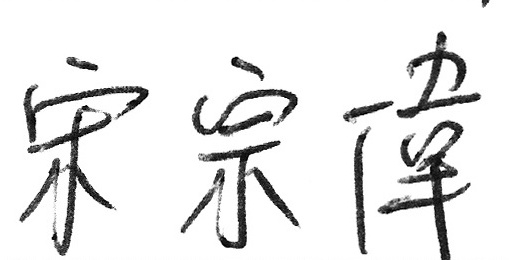 宋宗偉